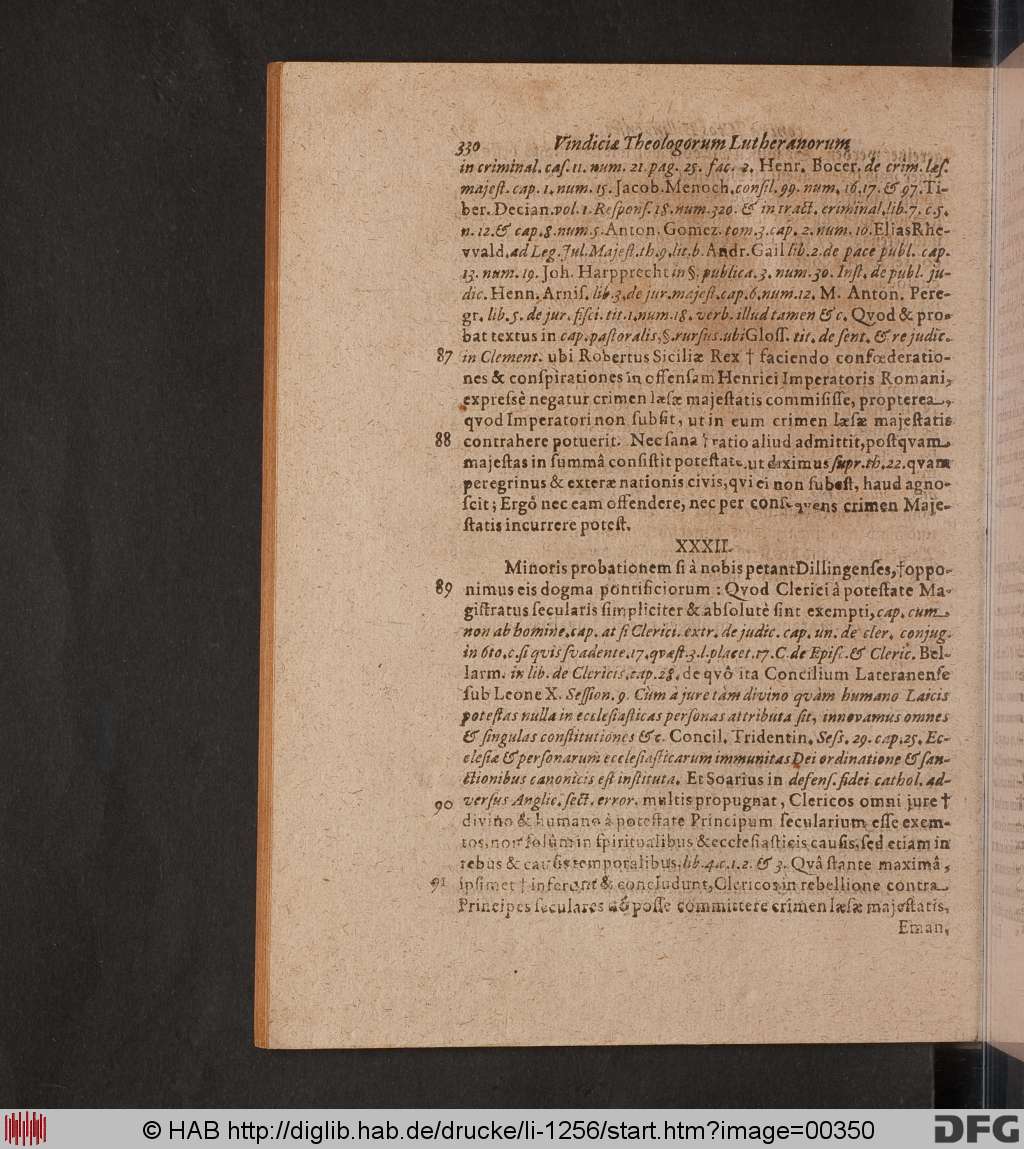 330 Vindiciæ Theologorum Lutheranorum
in criminal. caſ. 11. num. 21. pag. 25. fac. 2. Henr. Bocer. de crim. læſ.
majeſt. cap. 1. num. 15. Jacob. Menoch. conſil. 99. num. 16. 17. & 97. Ti-
ber. Decian. vol. 1. Reſponſ. 18. num. 320. & in tract. criminal. lib. 7. c. 5.
n. 12. & cap. 8. num. 5. Anton. Gomez. tom. 3. cap. 2. num. 10. Elias Rhe-
vvald. ad Leg. Jul. Majeſt. th. 9. lit. b. Andr. Gail lib. 2. de pace publ. cap.
13. num. 19. Joh. Harpprecht in §. publica. 3. num. 30. Inſt. de publ. ju-
dic. Henn. Arniſ. lib. 3. de jur. majeſt. cap. 6. num. 12. M. Anton. Pere-
gr. lib. 5. de jur. fiſci. tit. 1. num. 18. verb. illud tamen & c. Qvod & pro-
bat textus in cap. paſtoralis, §. rurſus. ubi Gloſſ. tit. de ſent. & re judic.
87 in Clement. ubi Robertus Siciliæ Rex † faciendo confœderatio-
nes & conſpirationes in offenſam Henrici Imperatoris Romani,
expreſsè negatur crimen læſæ majeſtatis commiſiſſe, propterea,
qvod Imperatori non ſubſit, ut in eum crimen læſæ majeſtatis
88 contrahere potuerit. Nec ſana † ratio aliud admittit, poſtqvam
majeſtas in ſummâ conſiſtit poteſtate, ut diximus ſupr. th. 22. qvam
peregrinus & exteræ nationis civis, qvi ei non ſubeſt, haud agno-
ſcit; Ergò nec eam offendere, nec per conſeqvens crimen Maje-
ſtatis incurrere poteſt.
XXXII.
Minoris probationem ſi à nobis petant Dillingenſes, † oppo-
89 nimus eis dogma pontificiorum: Qvod Clerici à poteſtate Ma-
giſtratus ſecularis ſimpliciter & abſolutè ſint exempti, cap. cum
non ab homine. cap. at ſi Clerici. extr. de judic. cap. un. de cler. conjug.
in 6to. c. ſi qvis ſvadente. 17. qvæſt. 3. l. placet. 17. C. de Epiſc. & Cleric. Bel-
larm. in lib. de Clericis. cap. 28. de qvô ita Concilium Lateranenſe
ſub Leone X. Seſſion. 9. Cùm à jure tàm divino qvàm humano Laicis
poteſtas nulla in eccleſiaſticas perſonas attributa ſit, innovamus omnes
& ſingulas conſtitutiones & c. Concil. Tridentin. Seſs. 29. cap. 25. Ec-
cleſiæ & perſonarum eccleſiaſticarum immunitas Dei ordinatione & ſan-
ctionibus canonicis eſt inſtituta. Et Soarius in defenſ. fidei cathol. ad-
90 verſus Anglic. ſect. error. multis propugnat, Clericos omni jure †
divino & humano à poteſtate Principum ſecularium eſſe exem-
tos, non ſolùm in ſpiritualibus & eccleſiaſticis cauſis, ſed etiam in
rebus & cauſis temporalibus. lib. 4. c. 1. 2. & 3. Qvâ ſtante maximâ,
91 ipſimet † inferunt & concludunt, Clericos in rebellione contra
Principes ſeculares nô poſſe committere crimen læſæ majeſtatis,
Eman.
© HAB http://diglib.hab.de/drucke/li-1256/start.htm?image=00350
DFG